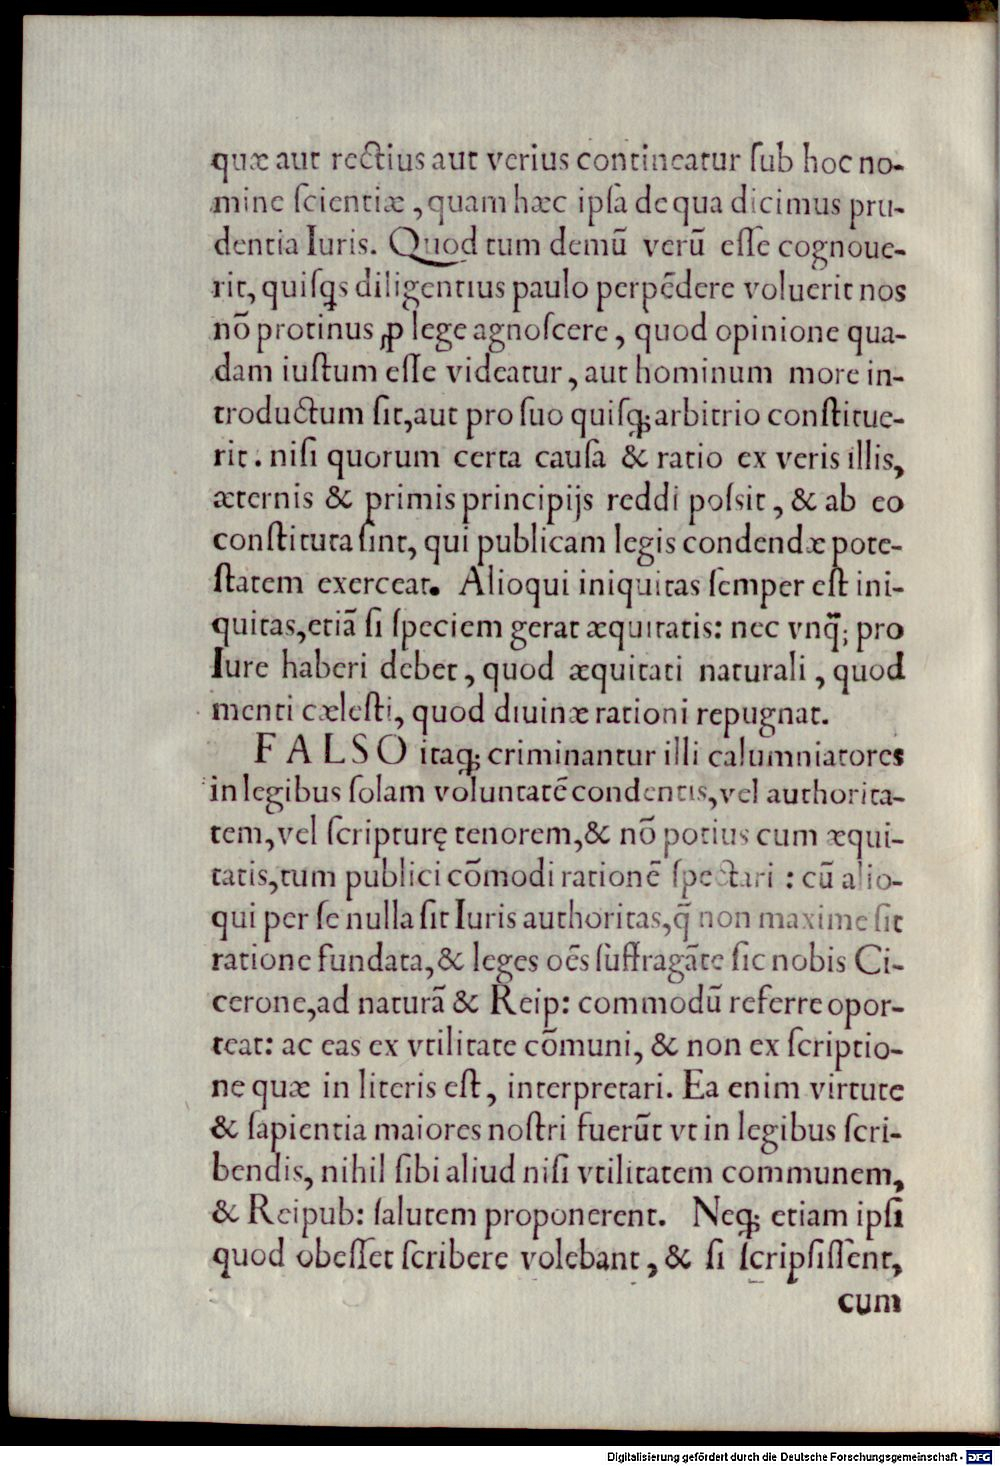 quæ aut rectius aut verius contineatur ſub hoc no-
mine ſcientiæ, quam hæc ipſa de qua dicimus pru-
dentia Iuris. Quod tum demũ verũ eſſe cognoue-
rit, quiſqs diligentius paulo perpẽdere voluerit nos
nõ protinus ꝓ lege agnoſcere, quod opinione qua-
dam iuſtum eſſe videatur, aut hominum more in-
troductum ſit, aut pro ſuo quiſq; arbitrio conſtitue-
rit. niſi quorum certa cauſa & ratio ex veris illis,
æternis & primis principijs reddi poſsit, & ab eo
conſtituta ſint, qui publicam legis condendæ pote-
ſtatem exerceat. Alioqui iniquitas ſemper eſt ini-
quitas, etiã ſi ſpeciem gerat æquitatis: nec vnq̃; pro
Iure haberi debet, quod æquitati naturali, quod
menti cæleſti, quod diuinæ rationi repugnat.
FALSO itaq; criminantur illi calumniatores
in legibus ſolam voluntatẽ condentis, vel authorita-
tem, vel ſcripturę tenorem, & nõ potius cum æqui-
tatis, tum publici cõmodi rationẽ ſpectari: cũ alio-
qui per ſe nulla ſit Iuris authoritas, q̃ non maxime ſit
ratione fundata, & leges oẽs ſuffragãte ſic nobis Ci-
cerone, ad naturã & Reip: commodũ referre opor-
teat: ac eas ex vtilitate cõmuni, & non ex ſcriptio-
ne quæ in literis eſt, interpretari. Ea enim virtute
& ſapientia maiores noſtri fuerũt vt in legibus ſcri-
bendis, nihil ſibi aliud niſi vtilitatem communem,
& Reipub: ſalutem proponerent. Neq; etiam ipſi
quod obeſſet ſcribere volebant, & ſi ſcripſiſſent,
cum
Digitalisierung gefördert durch die Deutsche Forschungsgemeinschaft - DFG